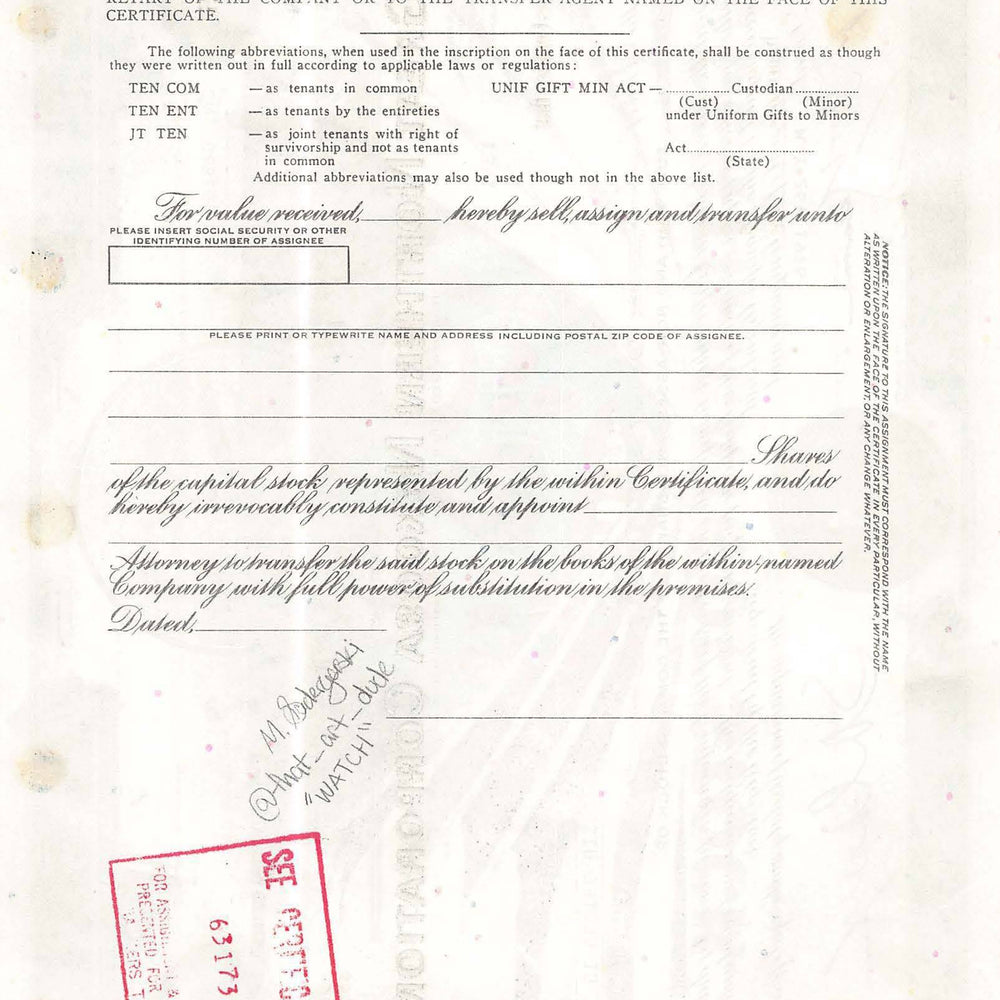 RETARY OF THE COMPANY OR TO THE TRANSFER AGENT NAMED ON THE FACE OF THIS
CERTIFICATE.
The following abbreviations, when used in the inscription on the face of this certificate, shall be construed as though
they were written out in full according to applicable laws or regulations:
TEN COM — as tenants in common
TEN ENT — as tenants by the entireties
JT TEN — as joint tenants with right of
survivorship and not as tenants
in common
UNIF GIFT MIN ACT — .................. Custodian ..................
(Cust) (Minor)
under Uniform Gifts to Minors
Act....................................
(State)
Additional abbreviations may also be used though not in the above list.
For value received, ________ hereby sell, assign and transfer unto
PLEASE INSERT SOCIAL SECURITY OR OTHER
IDENTIFYING NUMBER OF ASSIGNEE
PLEASE PRINT OR TYPEWRITE NAME AND ADDRESS INCLUDING POSTAL ZIP CODE OF ASSIGNEE.
Shares
of the capital stock represented by the within Certificate, and do
hereby irrevocably constitute and appoint
Attorney to transfer the said stock on the books of the within-named
Company with full power of substitution in the premises.
Dated,
NOTICE: THE SIGNATURE TO THIS ASSIGNMENT MUST CORRESPOND WITH THE NAME
AS WRITTEN UPON THE FACE OF THE CERTIFICATE IN EVERY PARTICULAR, WITHOUT
ALTERATION OR ENLARGEMENT, OR ANY CHANGE WHATEVER.
M.
@that_art_dude
"WATCH"
SEE
63173
FOR
PRESENTED FOR